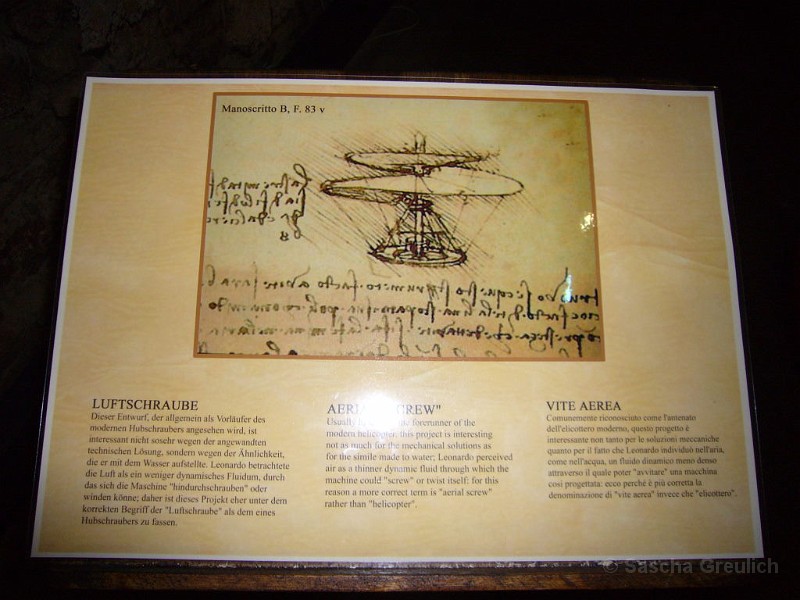 Manoscritto B, F. 83 v
LUFTSCHRAUBE
Dieser Entwurf, der allgemein als Vorläufer des
modernen Hubschraubers angesehen wird, ist
interessant nicht sosehr wegen der angewandten
technischen Lösung, sondern wegen der Ähnlichkeit,
die er mit dem Wasser aufstellte. Leonardo betrachtete
die Luft als ein weniger dynamisches Fluidum, durch
das sich die Maschine "hindurchschrauben" oder
winden könne; daher ist dieses Projekt eher unter dem
korrekten Begriff der "Luftschraube" als dem eines
Hubschraubers zu fassen.
CREW"
Usually the forerunner of the
modern helicopter, this project is interesting
not as much for the mechanical solutions as
for the simile made to water; Leonardo perceived
air as a thinner dynamic fluid through which the
machine could "screw" or twist itself: for this
reason a more correct term is "aerial screw"
rather than "helicopter".
VITE AEREA
Comunemente riconosciuto come l'antenato
dell'elicottero moderno, questo progetto è
interessante non tanto per le soluzioni meccaniche
quanto per il fatto che Leonardo individuò nell'aria,
come nell'acqua, un fluido dinamico meno denso
attraverso il quale poter "avvitare" una macchina
così progettata: ecco perché è più corretta la
denominazione di "vite aerea" invece che "elicottero".
© Sascha Greulich